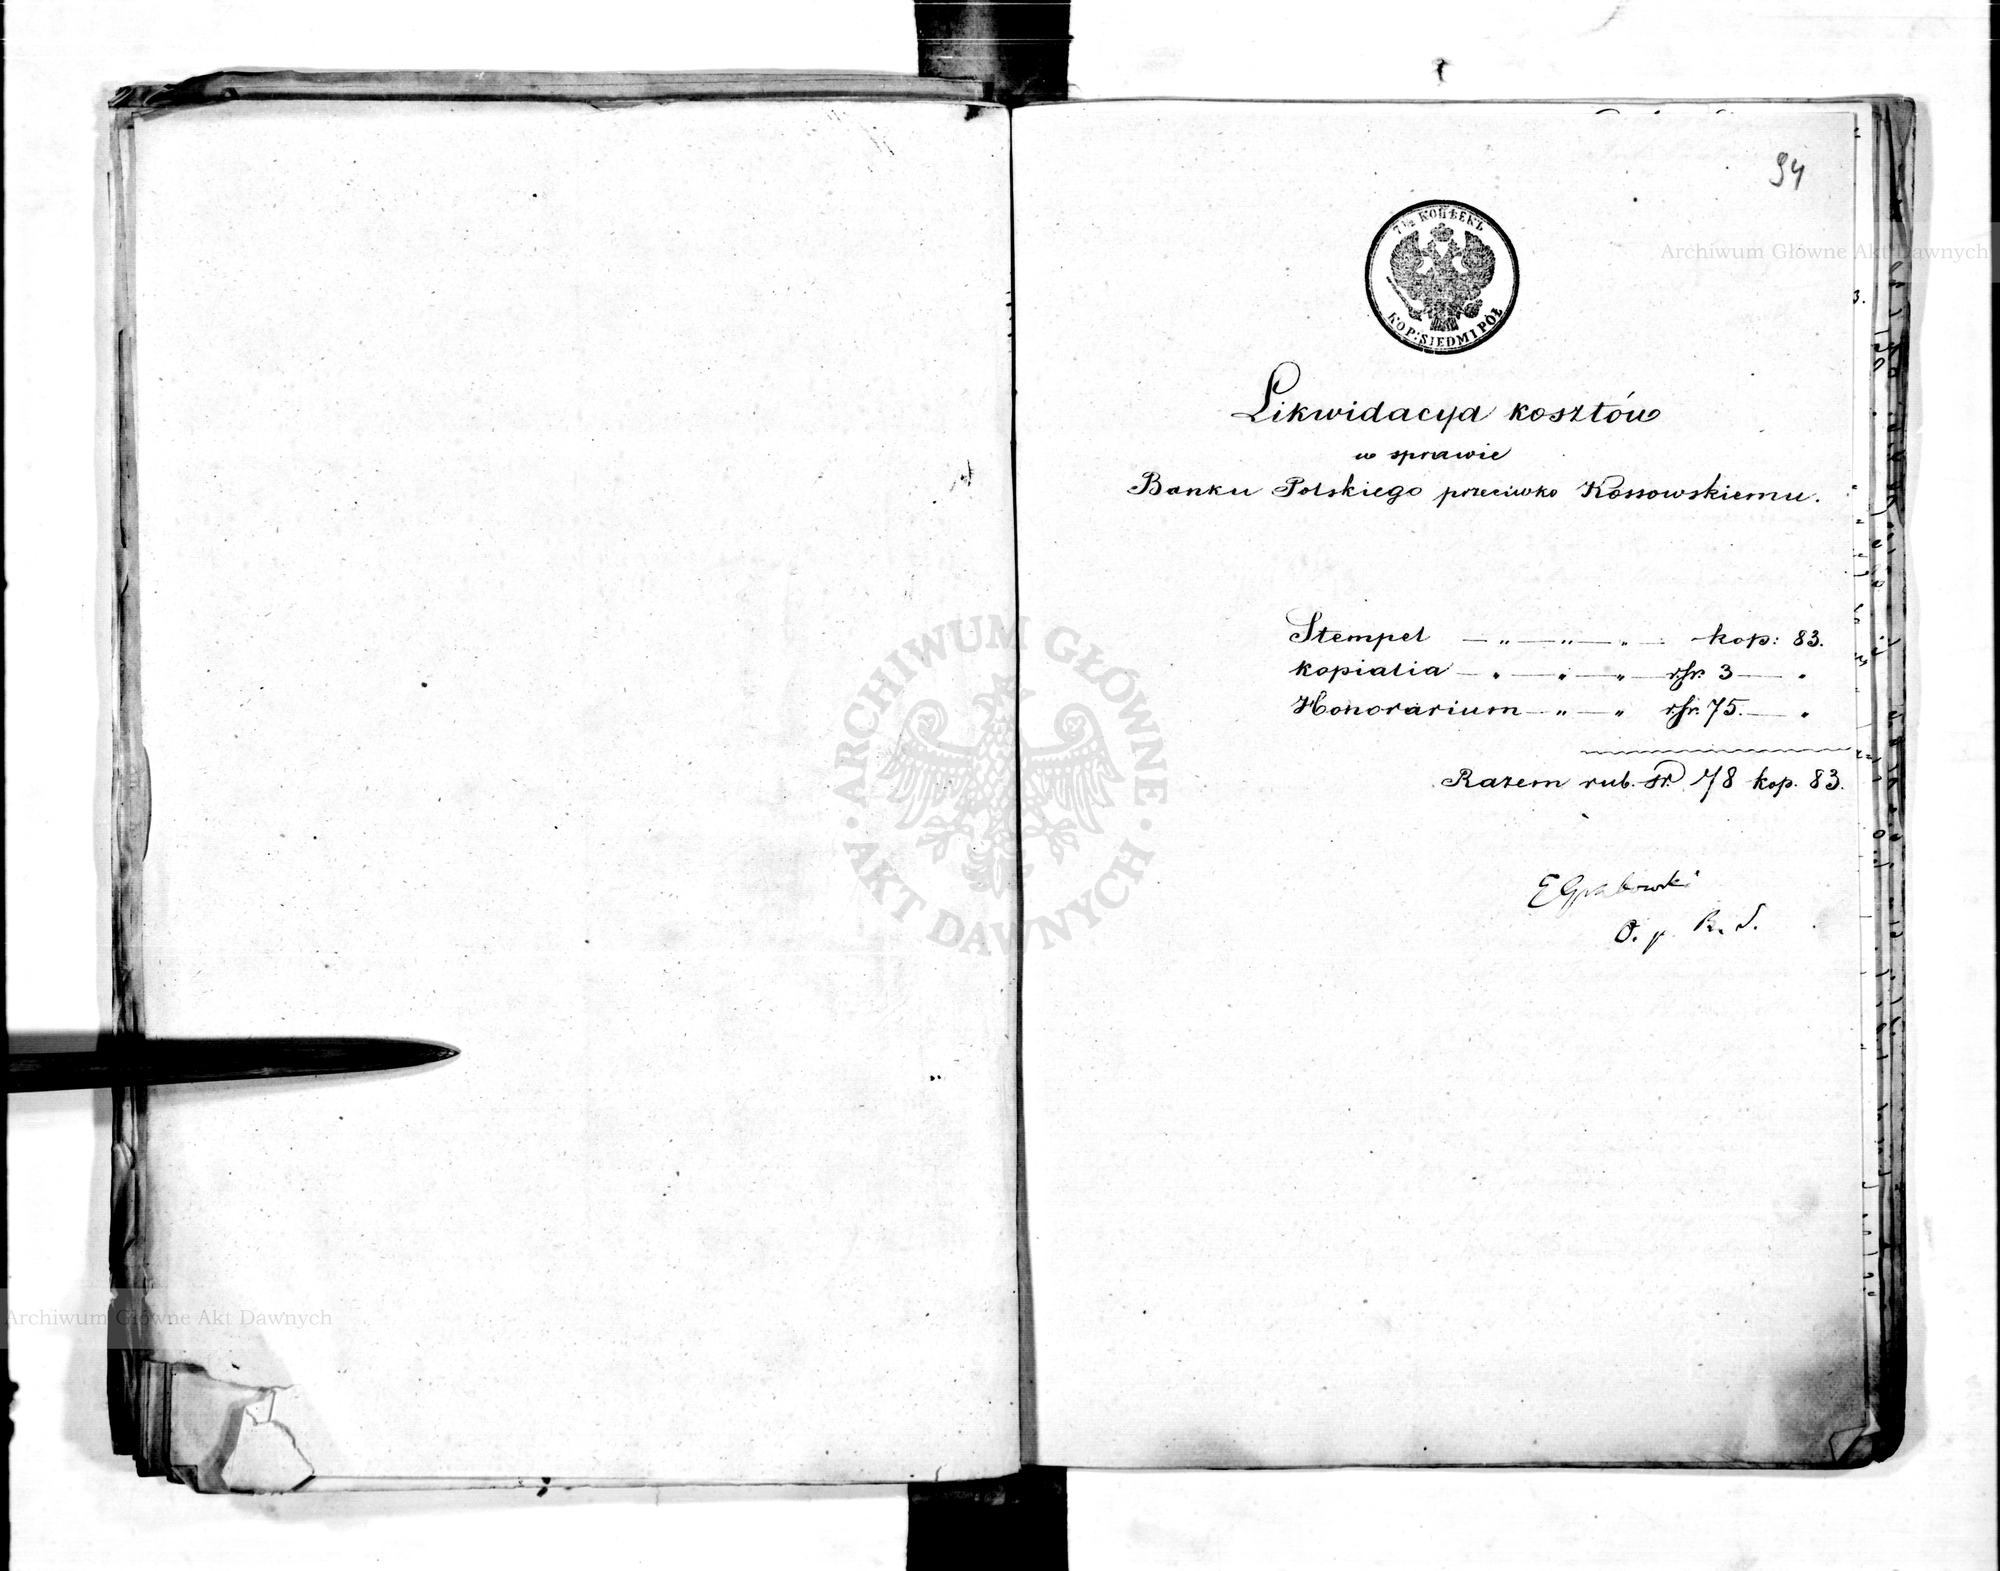 94
7½ КОПѢЕКЪ
KOP: SIEDMI PÓŁ
Likwidacya kosztów
w sprawie
Banku Polskiego przeciwko Kossowskiemu.
Stempel — „ — „ — „ — kop: 83.
kopialia — „ — „ — „ rsr. 3 — „
Honorarium — „ — „ rsr. 75. — „
Razem rub. sr. 78 kop. 83.
EGrabowski
O. p. R. S.
Archiwum Główne Akt Dawnych
ARCHIWUM GŁÓWNE
AKT DAWNYCH
Archiwum Główne Akt Dawnych